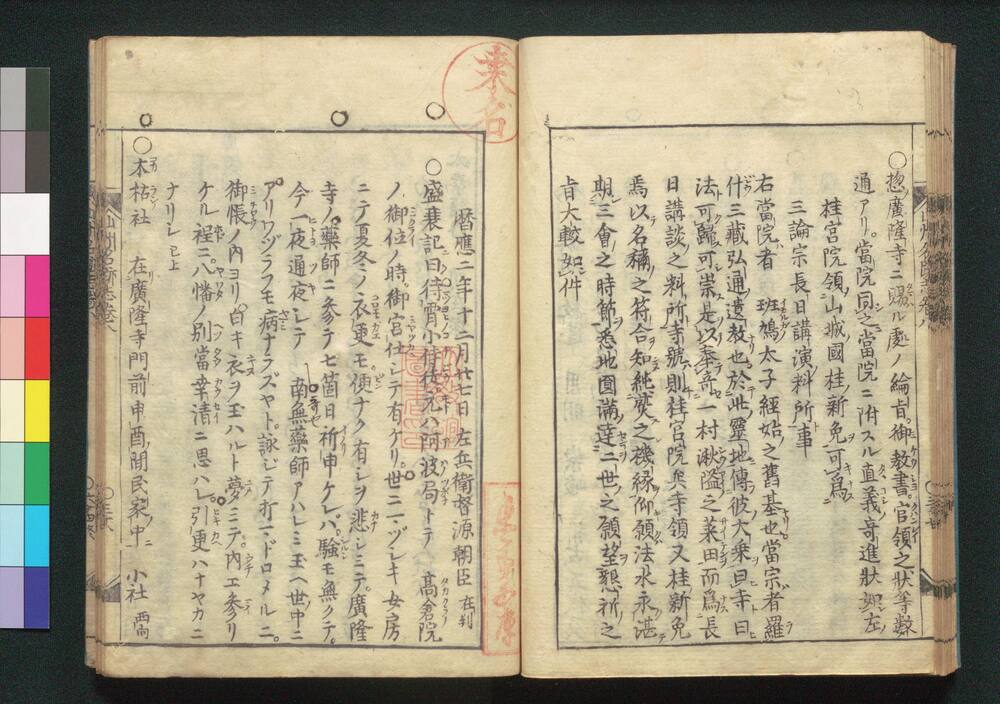 〇惣廣隆寺ニ賜ル處ノ綸旨御教書官領之狀等數
通アリ當院同之當院ニ附スル直義寄進狀如左
桂宮院領山城國桂新免可為
三論宗長日講演料所事
右當院者 班鳩太子經始之舊基也當宗者羅
什三藏弘通遺教也於此靈地傳彼大乗曰寺曰
法可歸可崇是以奉寄一村湫隘之莱田而為長
日講談之料所寺號則桂宮院矣寺領又桂新免
焉以名稱之符合知純熟之機緣仰願法水永湛
期三會之時節悉地圓滿達二世之願望懇祈之
旨大較如件
暦應二年十二月廿七日 左兵衛督源朝臣 在判
〇盛衰記曰待宵小侍從元ハ阿波局トテ 髙倉院
ノ御位ノ時御宮仕シテ有ケリ世ニヅレキ女房
ニテ夏冬ノ衣更モ便ナク有シヲ悲シミテ廣隆
寺ノ藥師ニ参テ七箇日祈申ケレハ驗モ無クテ
今一夜通夜シテ 南無藥師アハレミ玉ヘ世中ニ
アリワヅラフモ病ナラズヤト詠ジテ打マドロメルニ
御帳ノ内ヨリ白キ衣ヲ玉ハルト夢ミテ内エ参リ
ケル程ニ八幡ノ別當幸清ニ思ハレ引更ハナヤカニ
ナリシ 已上
〇木枯社 在廣隆寺門前申酉間民家中 小社 西向